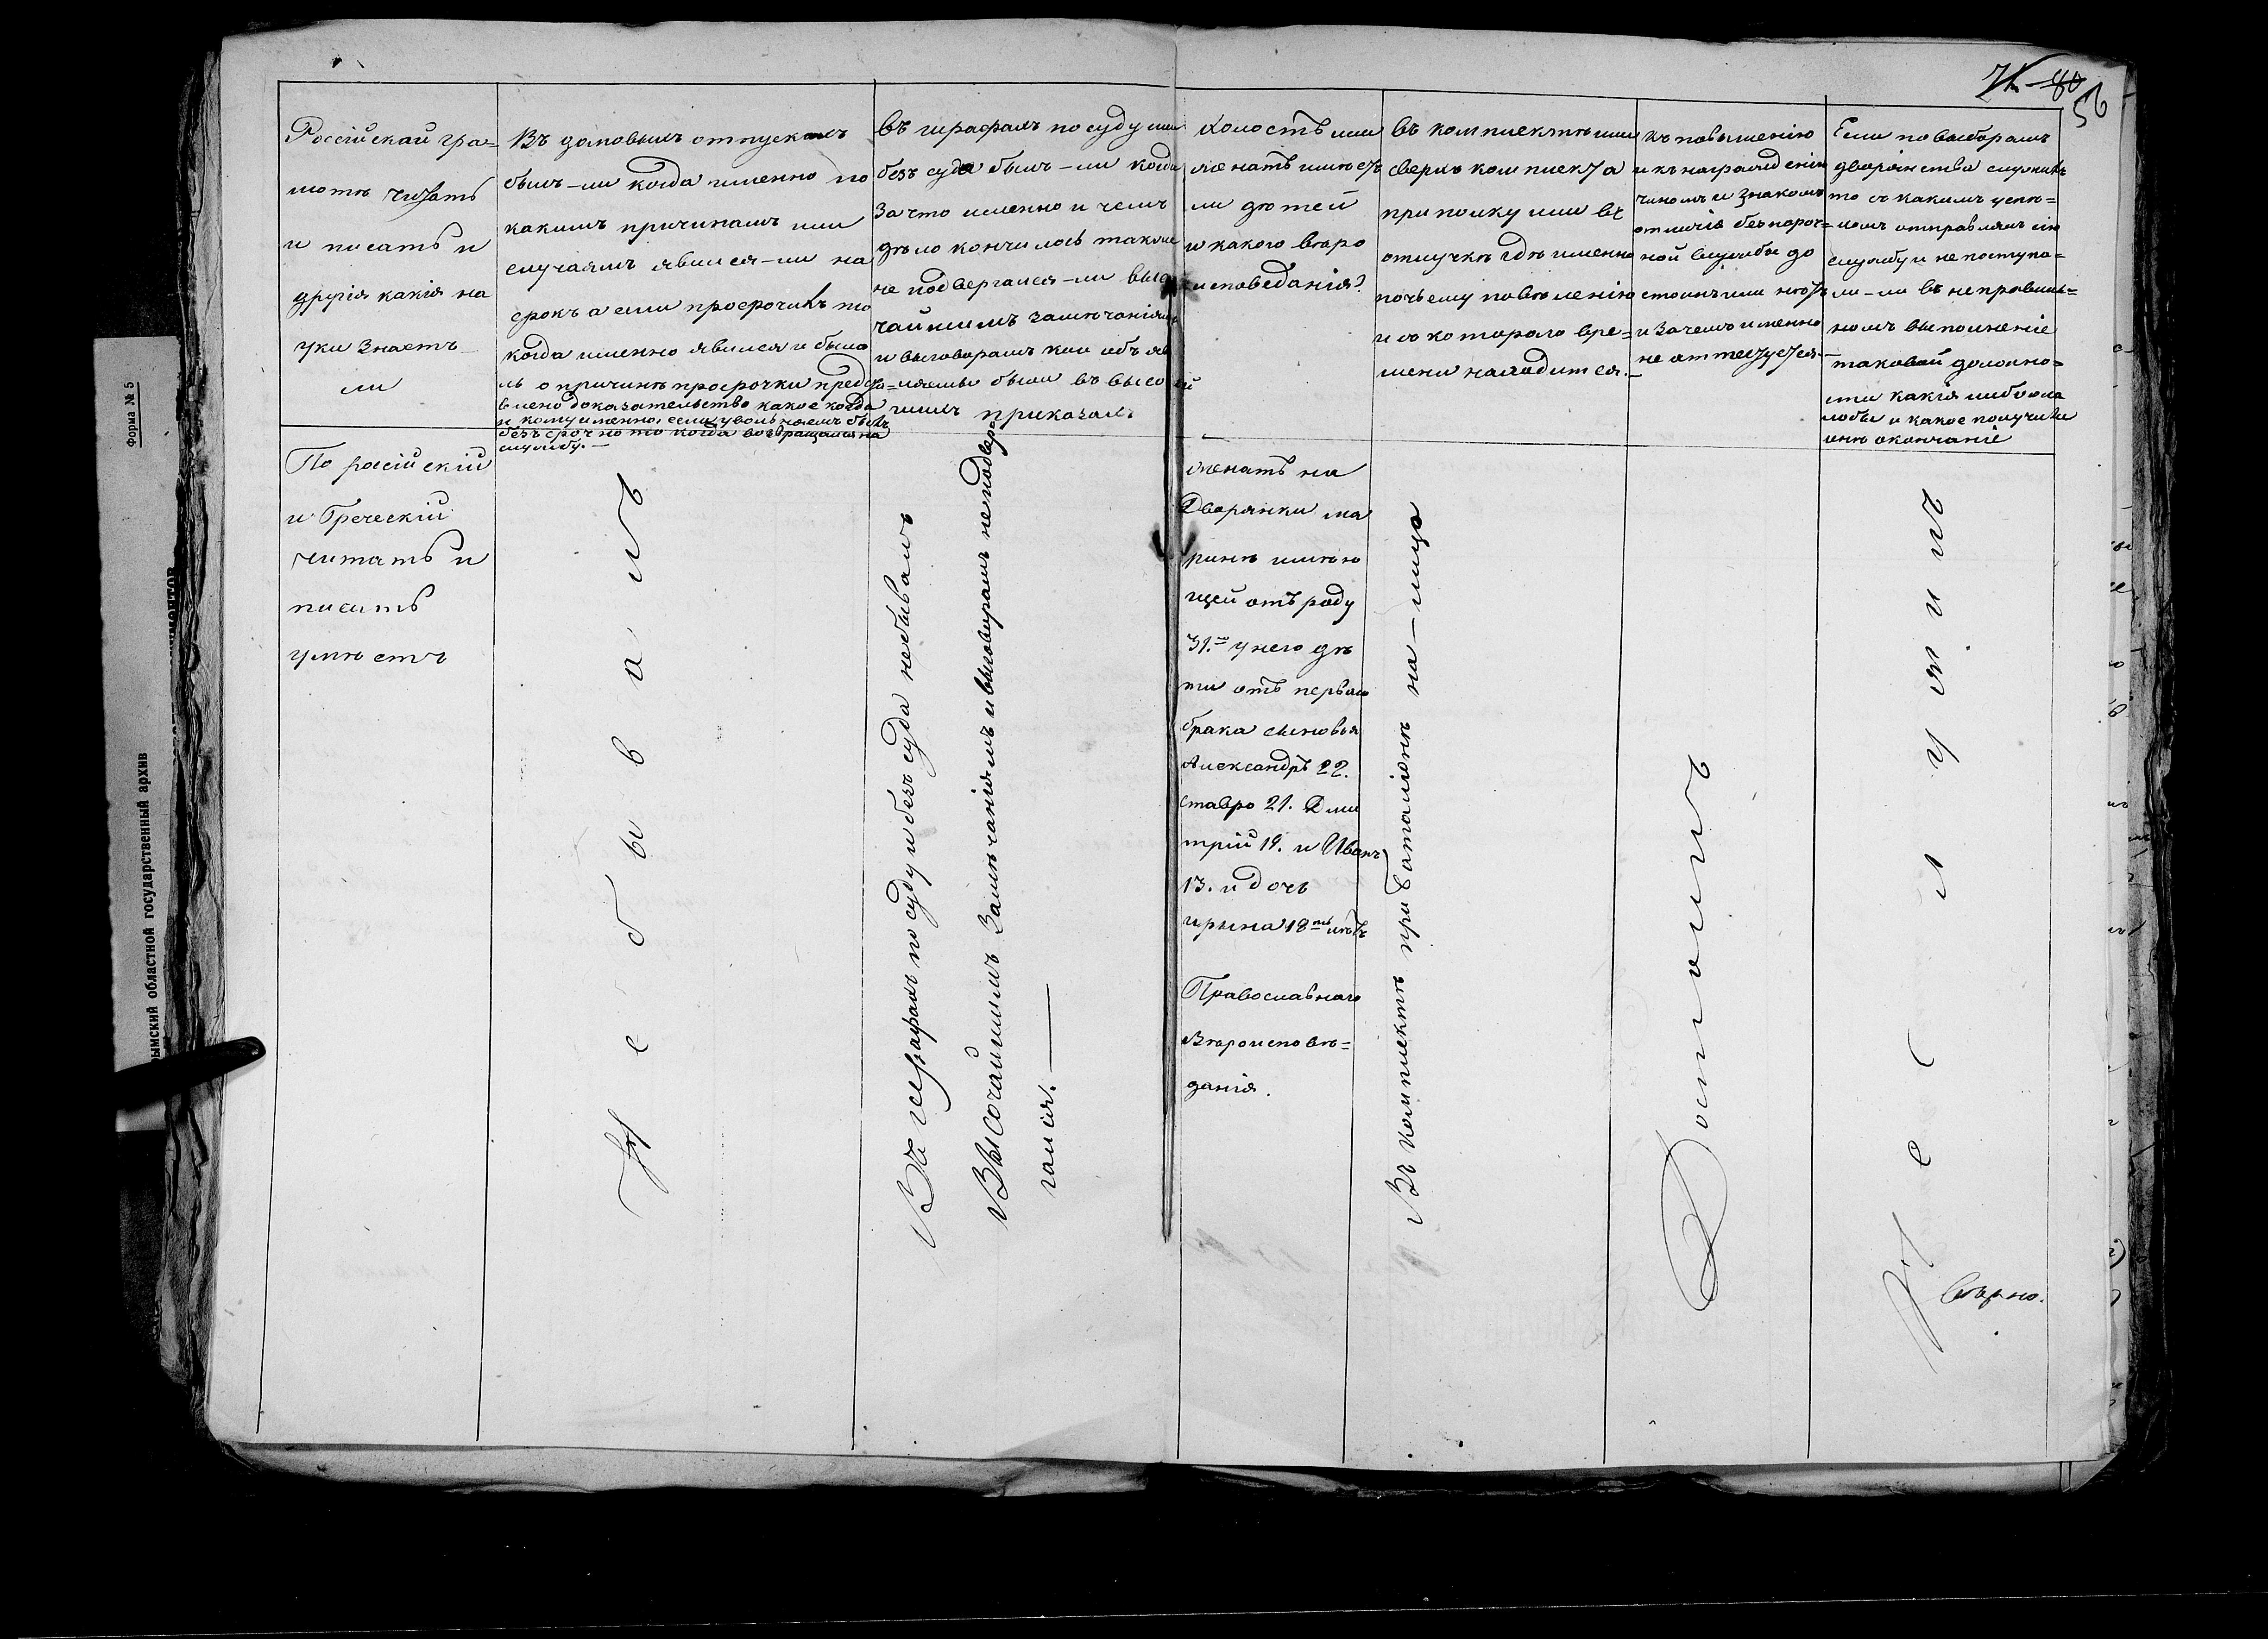 71 80
95
Россійскай гра=
мотѣ читать
и писать и
другія какія на
уки знаетъ
ли
Въ домовыхъ отпускахъ
былъ-ли когда именно по
какимъ причинамъ или
случаямъ явился-ли на
срокъ а если просрочилъ то
когда именно явился и было
ль о причинѣ просрочки предста=
влено доказательство какое когда
и кому именно, если уволъняемъ былъ
безъ срочно то когда возвращался на
службу.—
въ штрафахъ по суду или
безъ суда былъ-ли когда
за что именно и чемъ
дѣло кончилось также
не подвергался-ли высо
чайшимъ замѣчаніямъ
и выговорамъ кои объяв
ляемы были въ высочай
шихъ приказахъ
холостъ или
женатъ имѣетъ
ли дѣтей
и какого вѣро
исповеданія?
въ комплектѣ или
сверхъ комплекта
при полку или въ
отлучкѣ гдѣ именно
по чьему повѣленію
и съ котораго вре=
мени находится.—
Къ повышенію
и къ награжденію
чиномъ и знакомъ
отличія безпороч=
ной службы до
стоинъ или нѣтъ
и за чемъ именно
не аттестуется.—
Если по выборамъ
дворянства служилъ
то съ какимъ успѣ=
хомъ отправлялъ сію
службу и не поступа=
ли-ли въ неправиль=
номъ выполненіе
таковой должно=
сти какія либо жа
лобы и какое получили
онѣ окончаніе
По російскій
и Греческій
читать и
писать
умѣетъ
Не бывалъ
Въ штрафахъ по суду и безъ суда небывалъ
Высочаишимъ Замѣчаніямъ и выговорамъ неподвер=
гался.—
женатъ на
Дворянки ма
ринѣ имѣю
щей отъ роду
31. у него дѣ
ти отъ перваго
брака сыновья
Александръ 22.
ставро 21. Дми
трій 19. и Иванъ
13. и дочь
ирына 18 лѣтъ
Православнаго
Вѣроисповѣ=
данія.
Въ комплектѣ при баталіонѣ на-лицо
Достоинъ
Не служилъ
Вѣрно.
Форма № 5
рымский областной государственный архив